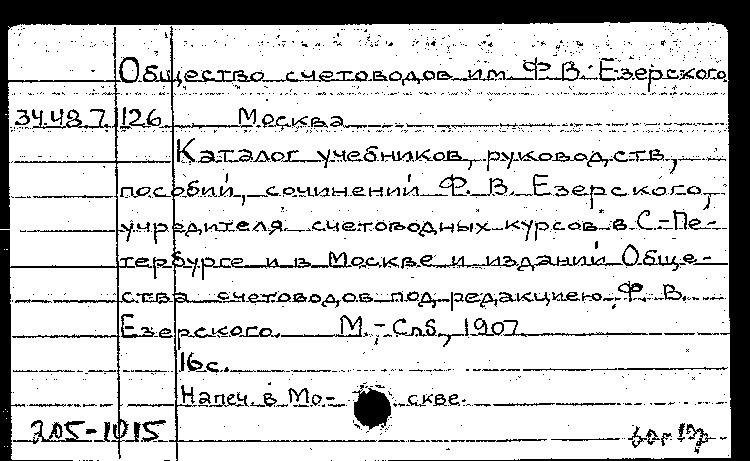 Общество счетоводов им. Ф. В. Езерского
34.48.7.126 Москва
Каталог учебников, руководств,
пособий, сочинений Ф. В. Езерского,
учредителя счетоводных курсов в С-Пе-
тербурге и в Москве и изданий Обще-
ства счетоводов под редакциею Ф. В.
Езерского. М.-Спб., 1907
16 с.
Напеч. в Мо- скве.
205-1015